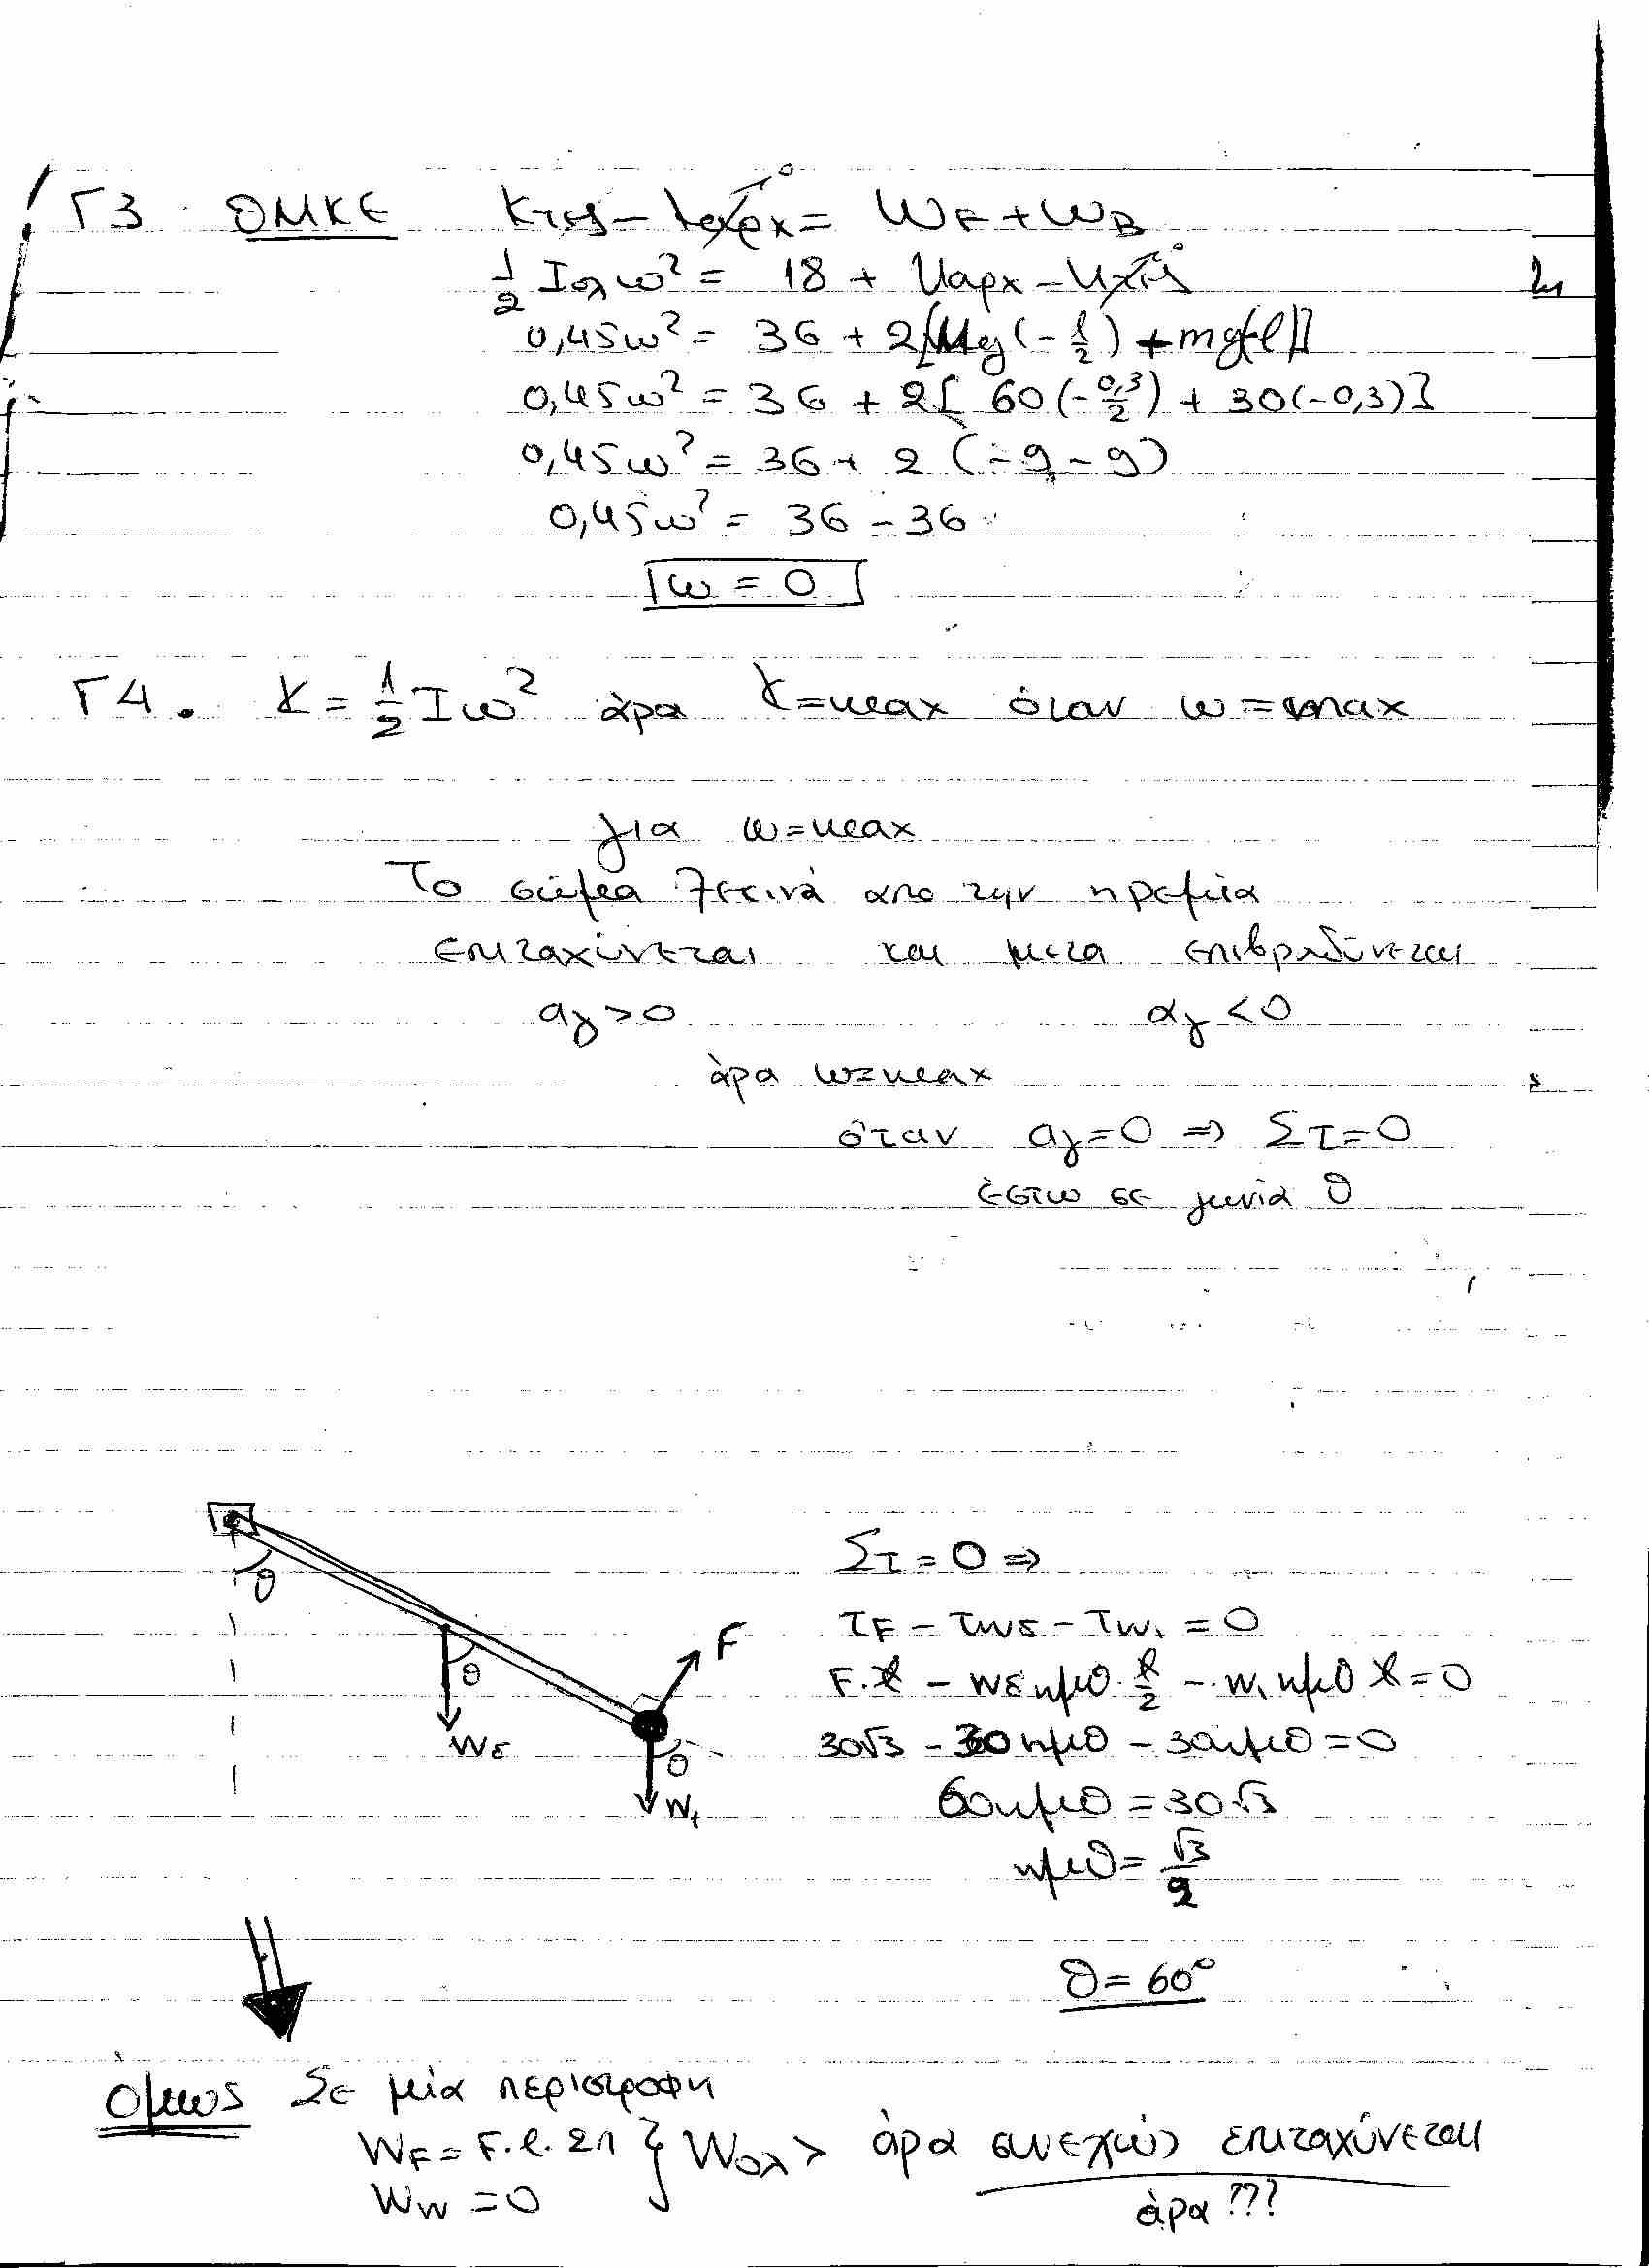 Γ3. ΘΜΚΕ Κτελ - Καρχ = WF + WB
1/2 Ιολ ω² = 18 + Uαρχ - Uτελ
0,45ω² = 36 + 2[Mg(-ℓ/2) + mg(-ℓ)]
0,45ω² = 36 + 2[60(-0,3/2) + 30(-0,3)]
0,45ω² = 36 + 2(-9-9)
0,45ω² = 36 - 36
ω = 0
Γ4. Κ = 1/2 Ιω² άρα Κ=max όταν ω=max
για ω=max
Το σώμα ξεκινά απο την ηρεμία
επιταχύνεται και μετα επιβραδύνεται
αγ>0 αγ<0
άρα ω=max
όταν αγ=0 ⇒ Στ=0
έστω σε γωνία θ
θ
θ
F
Wδ
θ
W₁
Στ=0 ⇒
τF - τWδ - τW₁ = 0
F·ℓ - Wδ ημθ·ℓ/2 - W₁ ημθ ℓ = 0
30√3 - 30ημθ - 30ημθ = 0
60ημθ = 30√3
ημθ = √3/2
θ = 60°
Όμως Σε μία περιστροφη
WF = F·ℓ·2π } Wολ > άρα συνεχώς επιταχύνεται
WW = 0
άρα ???